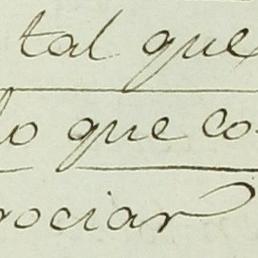 tal que
lo que co
rociar